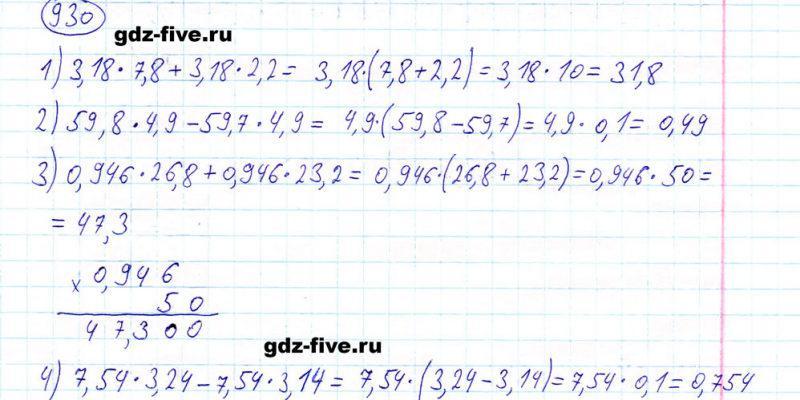 930
gdz-five.ru
1) 3,18·7,8+3,18·2,2= 3,18·(7,8+2,2)=3,18·10=31,8
2) 59,8·4,9-59,7·4,9= 4,9·(59,8-59,7)=4,9·0,1=0,49
3) 0,946·26,8+0,946·23,2= 0,946·(26,8+23,2)=0,946·50=
=47,3
x 0,946
50
47,300
gdz-five.ru
4) 7,54·3,24-7,54·3,14= 7,54·(3,24-3,14)=7,54·0,1=0,754